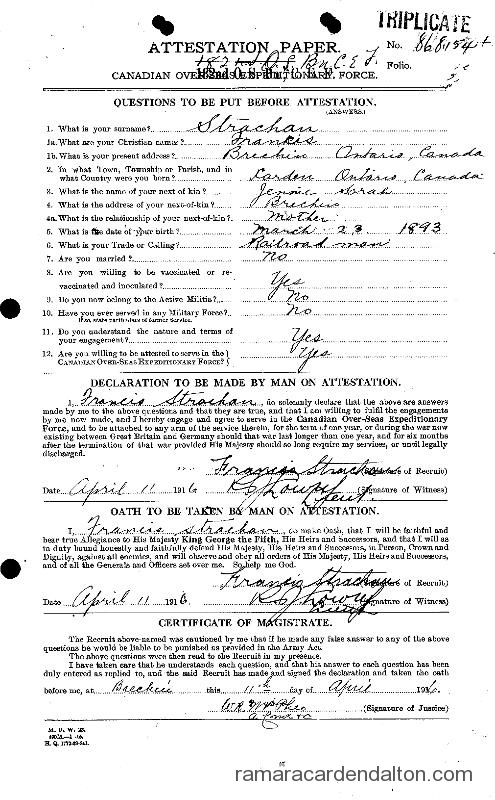 TRIPLICATE
ATTESTATION PAPER.
No. 868154
Folio.
CANADIAN OVER-SEAS EXPEDITIONARY FORCE.
QUESTIONS TO BE PUT BEFORE ATTESTATION.
(ANSWERS.)
1. What is your surname? Strachan
1a. What are your Christian names? Francis
1b. What is your present address? Brechin Ontario, Canada
2. In what Town, Township or Parish, and in
what Country were you born? Ontario, Canada
3. What is the name of your next of kin? Jennie
4. What is the address of your next-of-kin? Brechin
4a. What is the relationship of your next-of-kin? Mother
5. What is the date of your birth? March 23 1893
6. What is your Trade or Calling? Railroad man
7. Are you married? No
8. Are you willing to be vaccinated or re-
vaccinated and inoculated? Yes
9. Do you now belong to the Active Militia? No
10. Have you ever served in any Military Force? No
If so, state particulars of former Service.
11. Do you understand the nature and terms of
your engagement? Yes
12. Are you willing to be attested to serve in the
CANADIAN OVER-SEAS EXPEDITIONARY FORCE? Yes
DECLARATION TO BE MADE BY MAN ON ATTESTATION.
I, Francis Strachan, do solemnly declare that the above are answers
made by me to the above questions and that they are true, and that I am willing to fulfil the engagements
by me now made, and I hereby engage and agree to serve in the Canadian Over-Seas Expeditionary
Force, and to be attached to any arm of the service therein, for the term of one year, or during the war now
existing between Great Britain and Germany should that war last longer than one year, and for six months
after the termination of that war provided His Majesty should so long require my services, or until legally
discharged.
Francis Strachan (Signature of Recruit)
Date April 11 1916 Lieut. (Signature of Witness)
OATH TO BE TAKEN BY MAN ON ATTESTATION.
I, Francis Strachan, do make Oath, that I will be faithful and
bear true Allegiance to His Majesty King George the Fifth, His Heirs and Successors, and that I will as
in duty bound honestly and faithfully defend His Majesty, His Heirs and Successors, in Person, Crown and
Dignity, against all enemies, and will observe and obey all orders of His Majesty, His Heirs and Successors,
and of all the Generals and Officers set over me. So help me God.
Francis Strachan (Signature of Recruit)
Date April 11 1916 (Signature of Witness)
CERTIFICATE OF MAGISTRATE.
The Recruit above-named was cautioned by me that if he made any false answer to any of the above
questions he would be liable to be punished as provided in the Army Act.
The above questions were then read to the Recruit in my presence.
I have taken care that he understands each question, and that his answer to each question has been
duly entered as replied to, and the said Recruit has made and signed the declaration and taken the oath
before me, at Brechin this 11th day of April 1916.
(Signature of Justice)
M. F. W. 23.
H. Q. 1772-39-241.
ramaracardendalton.com